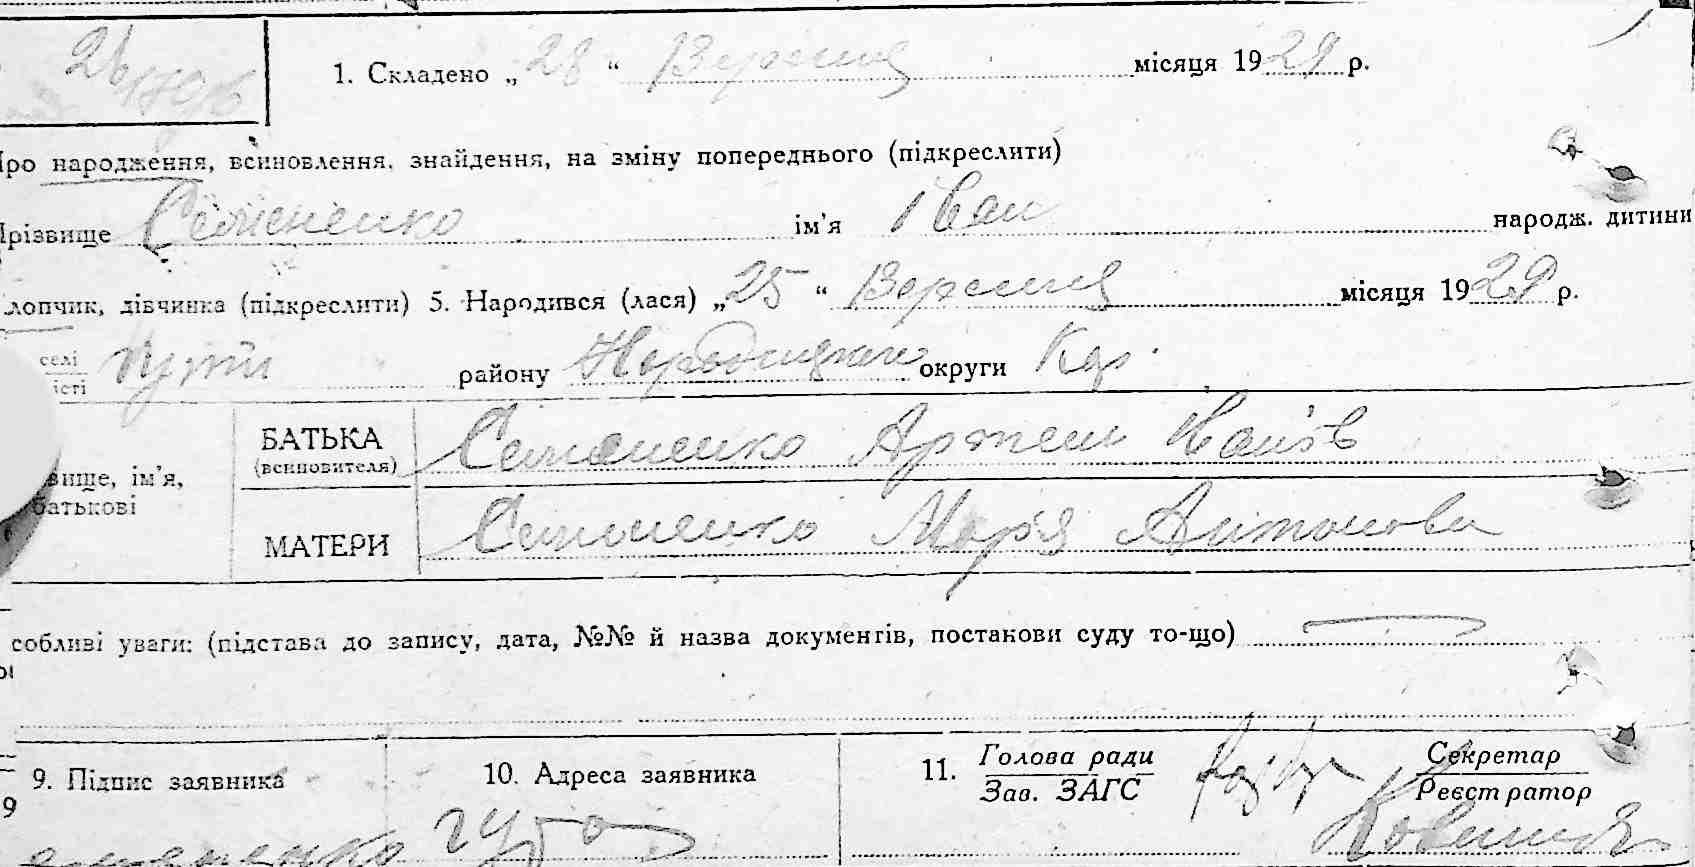 26
1. Складено „28“ Вересня місяця 1929 р.
Про народження, всиновлення, знайдення, на зміну попереднього (підкреслити)
Прізвище Семененко ім'я Іван народж. дитини
лопчик, дівчинка (підкреслити) 5. Народився (лася) „25“ Вересня місяця 1929 р.
селі
істі району Народицького округи Кор.
БАТЬКА
(всиновителя) Семененко Артем Іванів
вище, ім'я,
батькові
МАТЕРИ Семененко Марія Антонова
собливі уваги: (підстава до запису, дата, №№ й назва документів, постанови суду то-що)
9. Підпис заявника 10. Адреса заявника 11. Голова ради
Зав. ЗАГС Секретар
Реєстратор
9
еменко гута